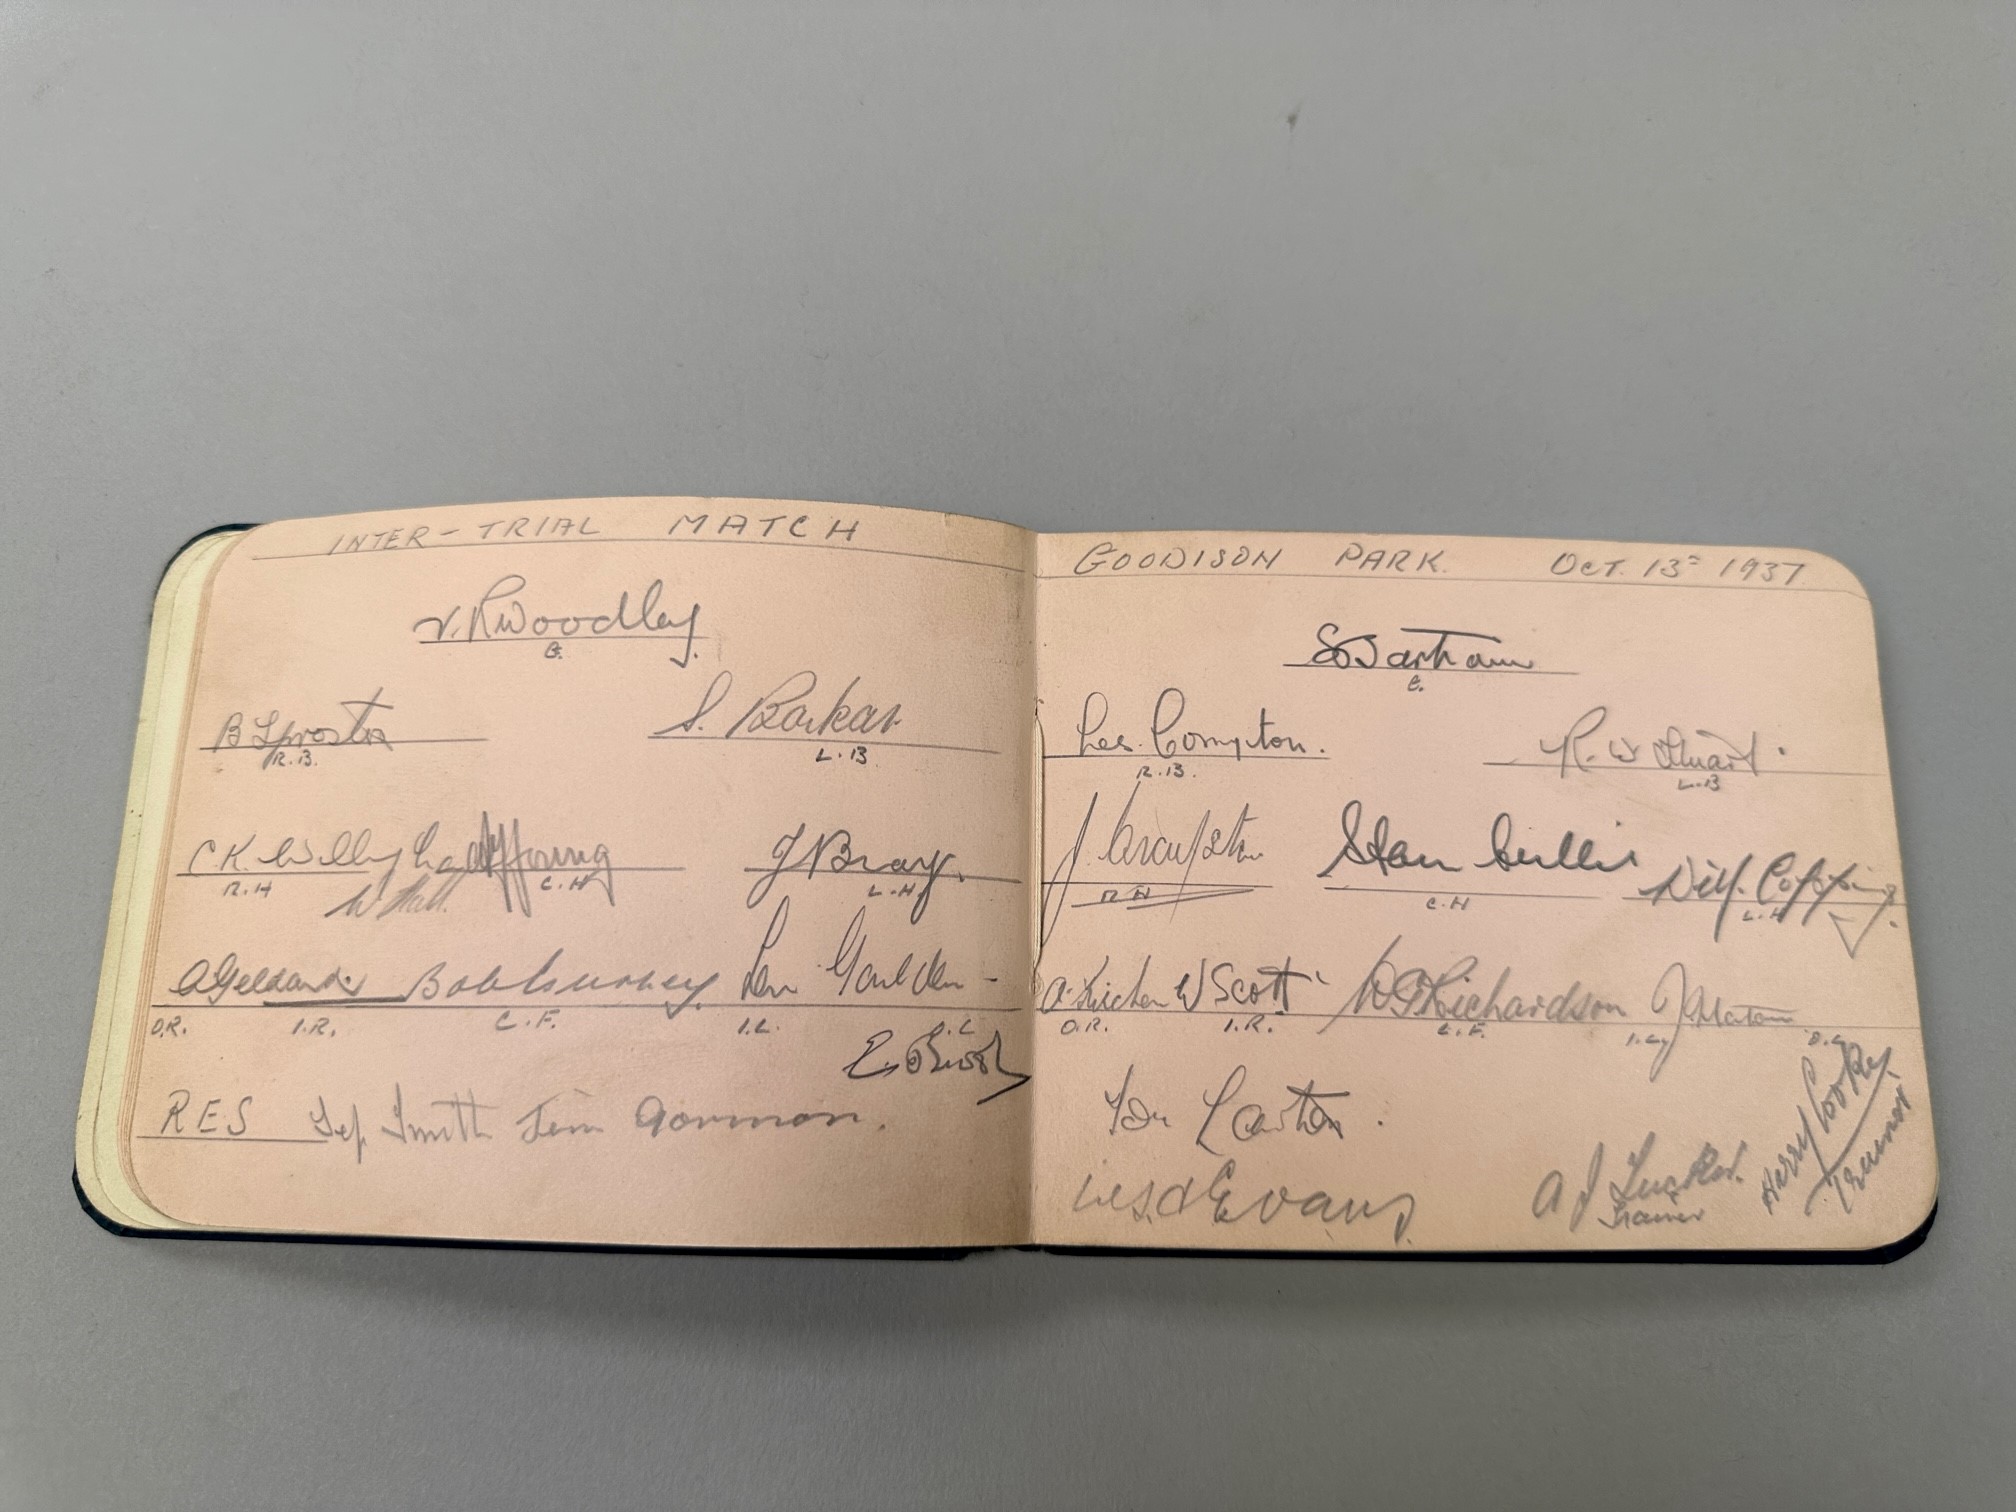 INTER-TRIAL MATCH
V. R Woodley
G.
B Sproston
R.B.
S. Barkas
L.B
C K. Willingham
R.H
A Young
C.H
J Bray.
L.H
W Hall.
A Geldard
O.R.
I.R.
Bob Gurney
C.F.
Len Goulden
I.L.
O.L
E. Brook
RES Sep Smith Jim Gorman.
GOODISON PARK. OCT. 13th 1937
G.
Les. Compton.
R.B.
R. W Stuart.
L.B
J. Crayston
R H
Stan Cullis
C.H
Wilf. Copping.
L.H
A. Kirchen
O.R.
W Scott
I.R.
W G Richardson
C.F.
J. Martin
I.L.
O.L
Tom Lawton.
Harry Cooke
Trainer
A J Tucker.
Trainer
Evans